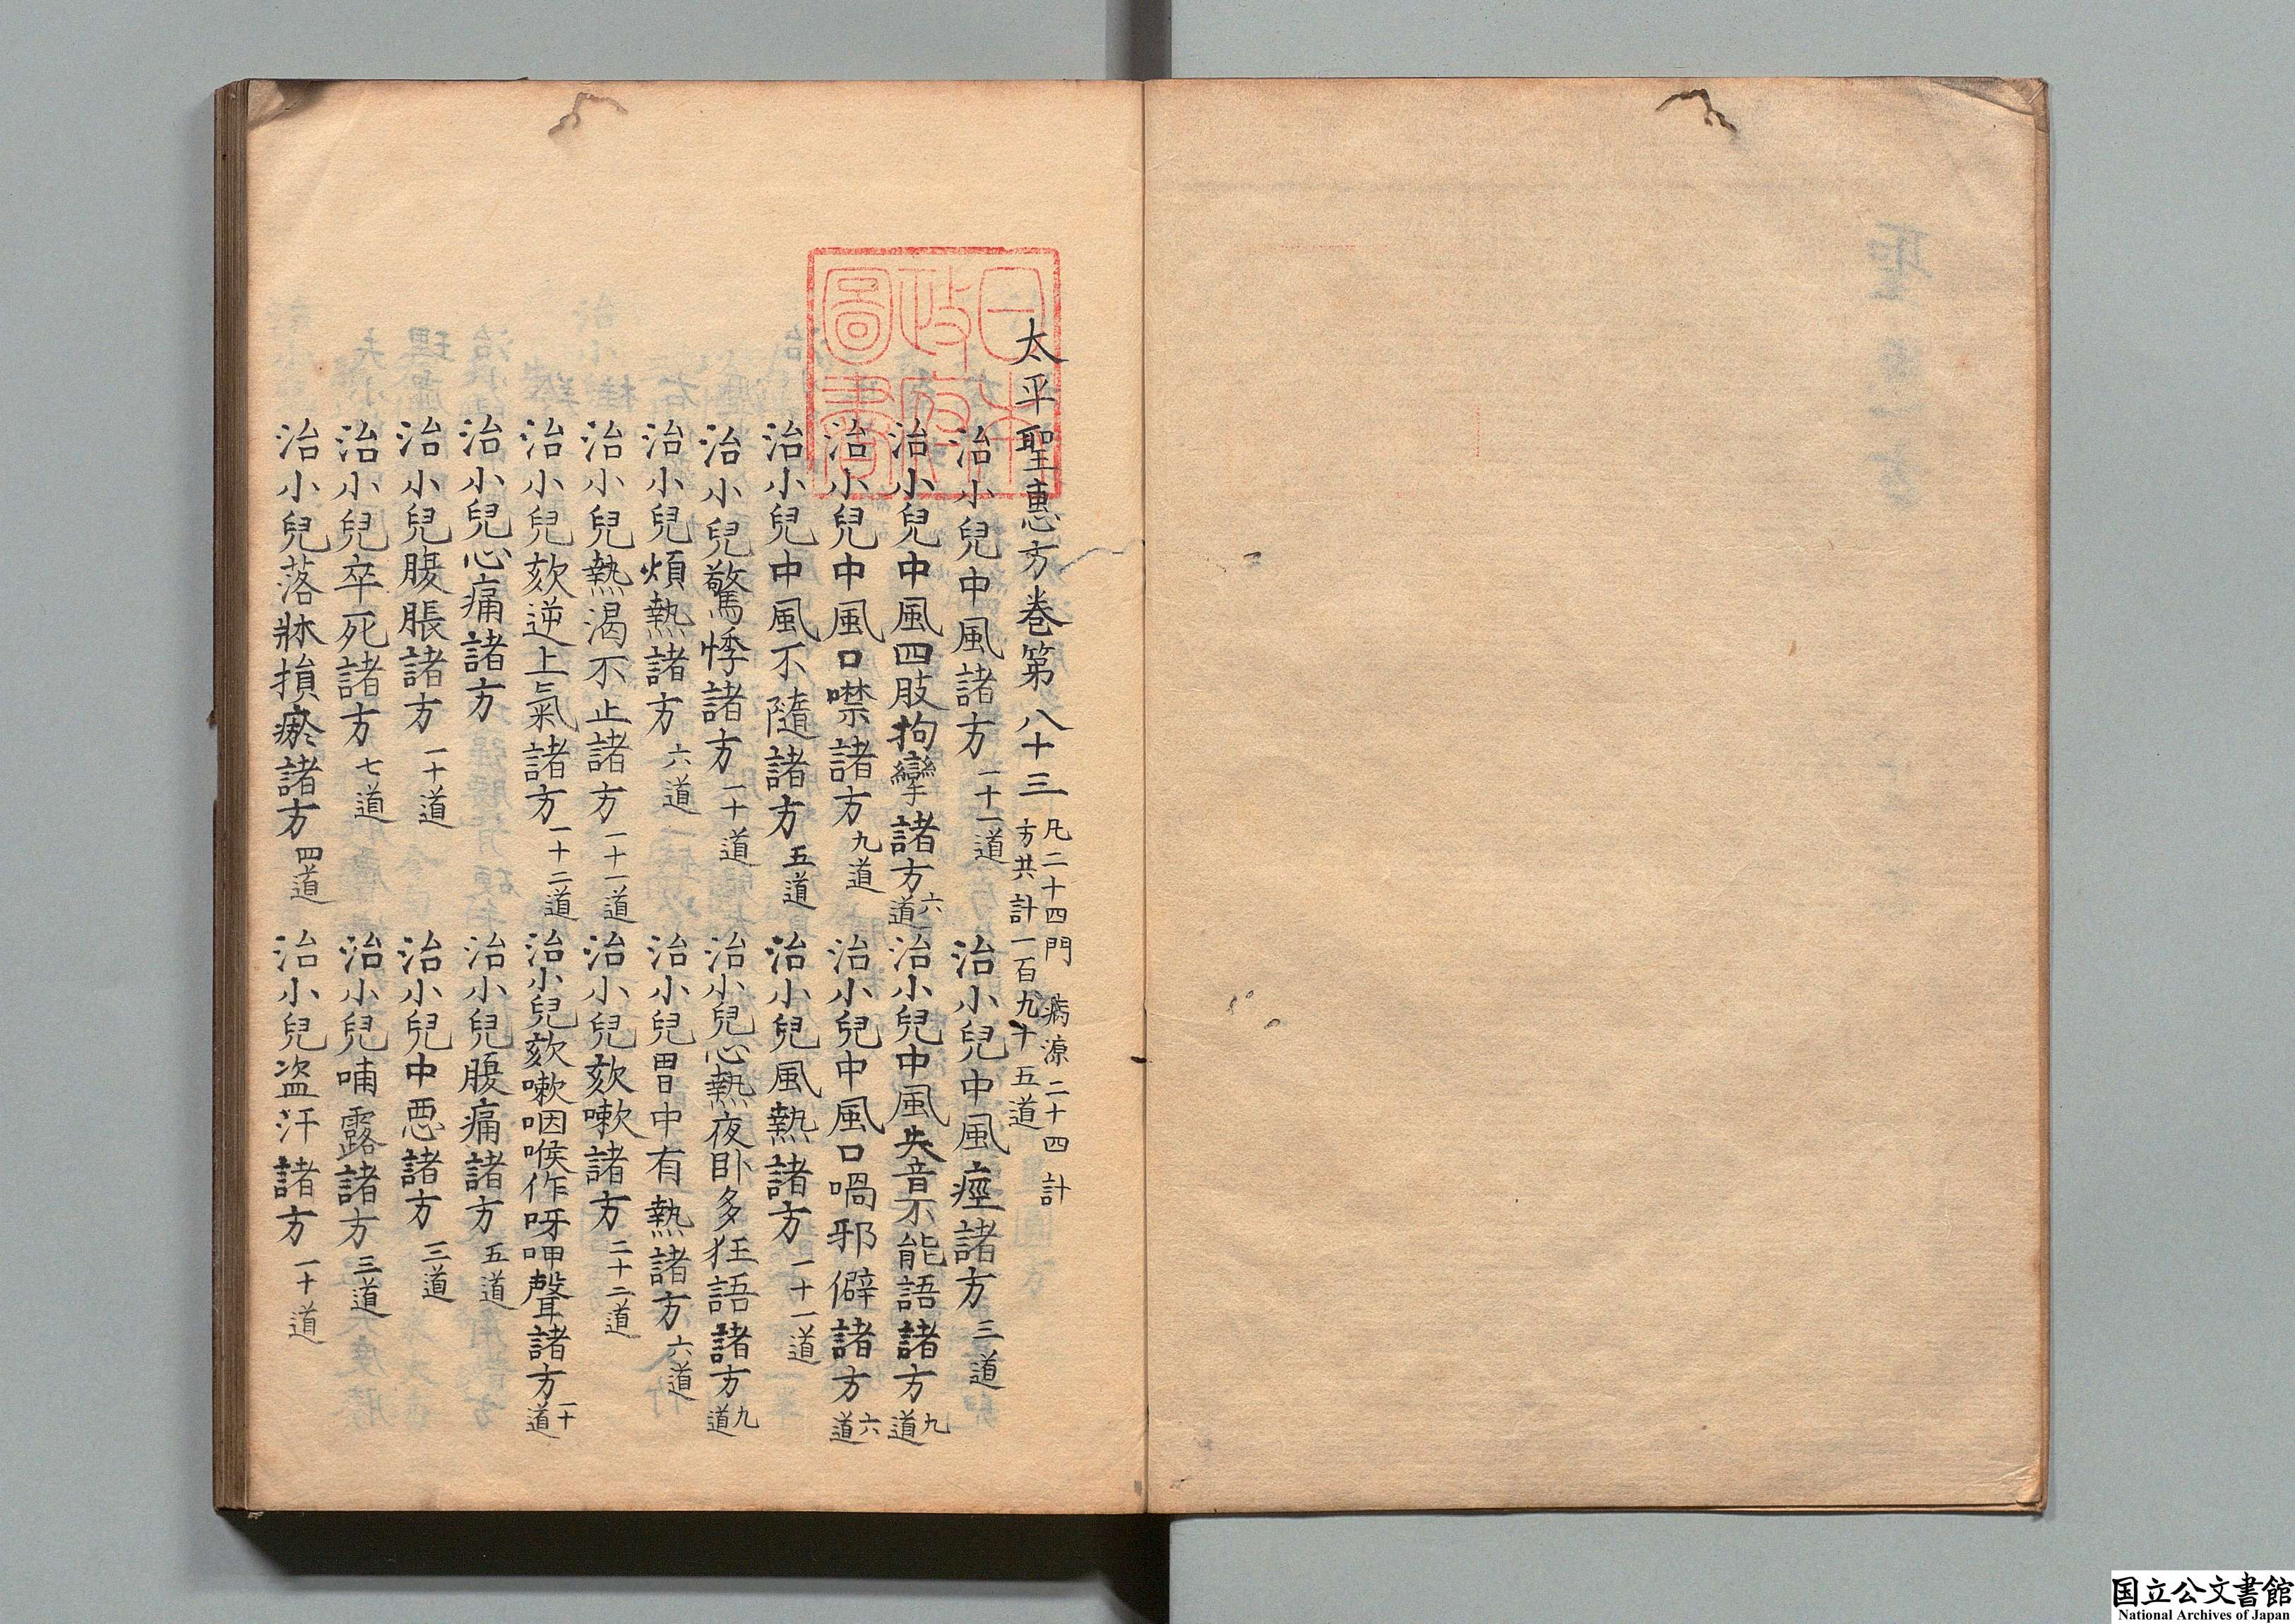 太平聖惠方卷第八十三 凡二十四門 病源二十四計 方共計一百九十五道
治小兒中風諸方 一十一道 治小兒中風痙諸方 三道
治小兒中風四肢拘攣諸方 六道 治小兒中風失音不能語諸方 九道
治小兒中風口噤諸方 九道 治小兒中風口喎邪僻諸方 六道
治小兒中風不隨諸方 五道 治小兒風熱諸方 一十一道
治小兒驚悸諸方 一十道 治小兒心熱夜卧多狂語諸方 九道
治小兒煩熱諸方 六道 治小兒胷中有熱諸方 六道
治小兒熱渴不止諸方 一十一道 治小兒欬嗽諸方 二十二道
治小兒欬逆上氣諸方 一十二道 治小兒欬嗽咽喉作呀呷聲諸方 一十道
治小兒心痛諸方 治小兒腹痛諸方 五道
治小兒腹脹諸方 一十道 治小兒中惡諸方 三道
治小兒卒死諸方 七道 治小兒哺露諸方 三道
治小兒落牀損瘀諸方 四道 治小兒盜汗諸方 一十道
日本政府圖書
国立公文書館
National Archives of Japan